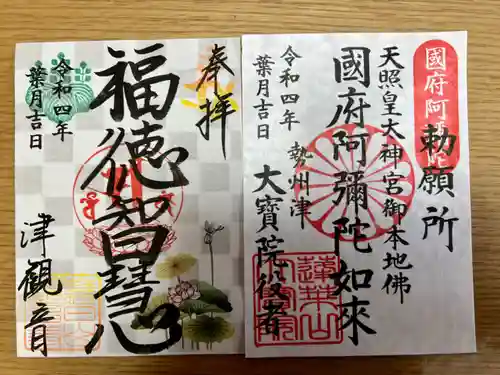 國府阿
勅願所
天照皇大神宮御本地佛
國府阿彌陀如來
勢州津
大寶院役者
令和四年
葉月吉日
蓮華山
奉拝
福徳智慧
津観音
令和四年
葉月吉日